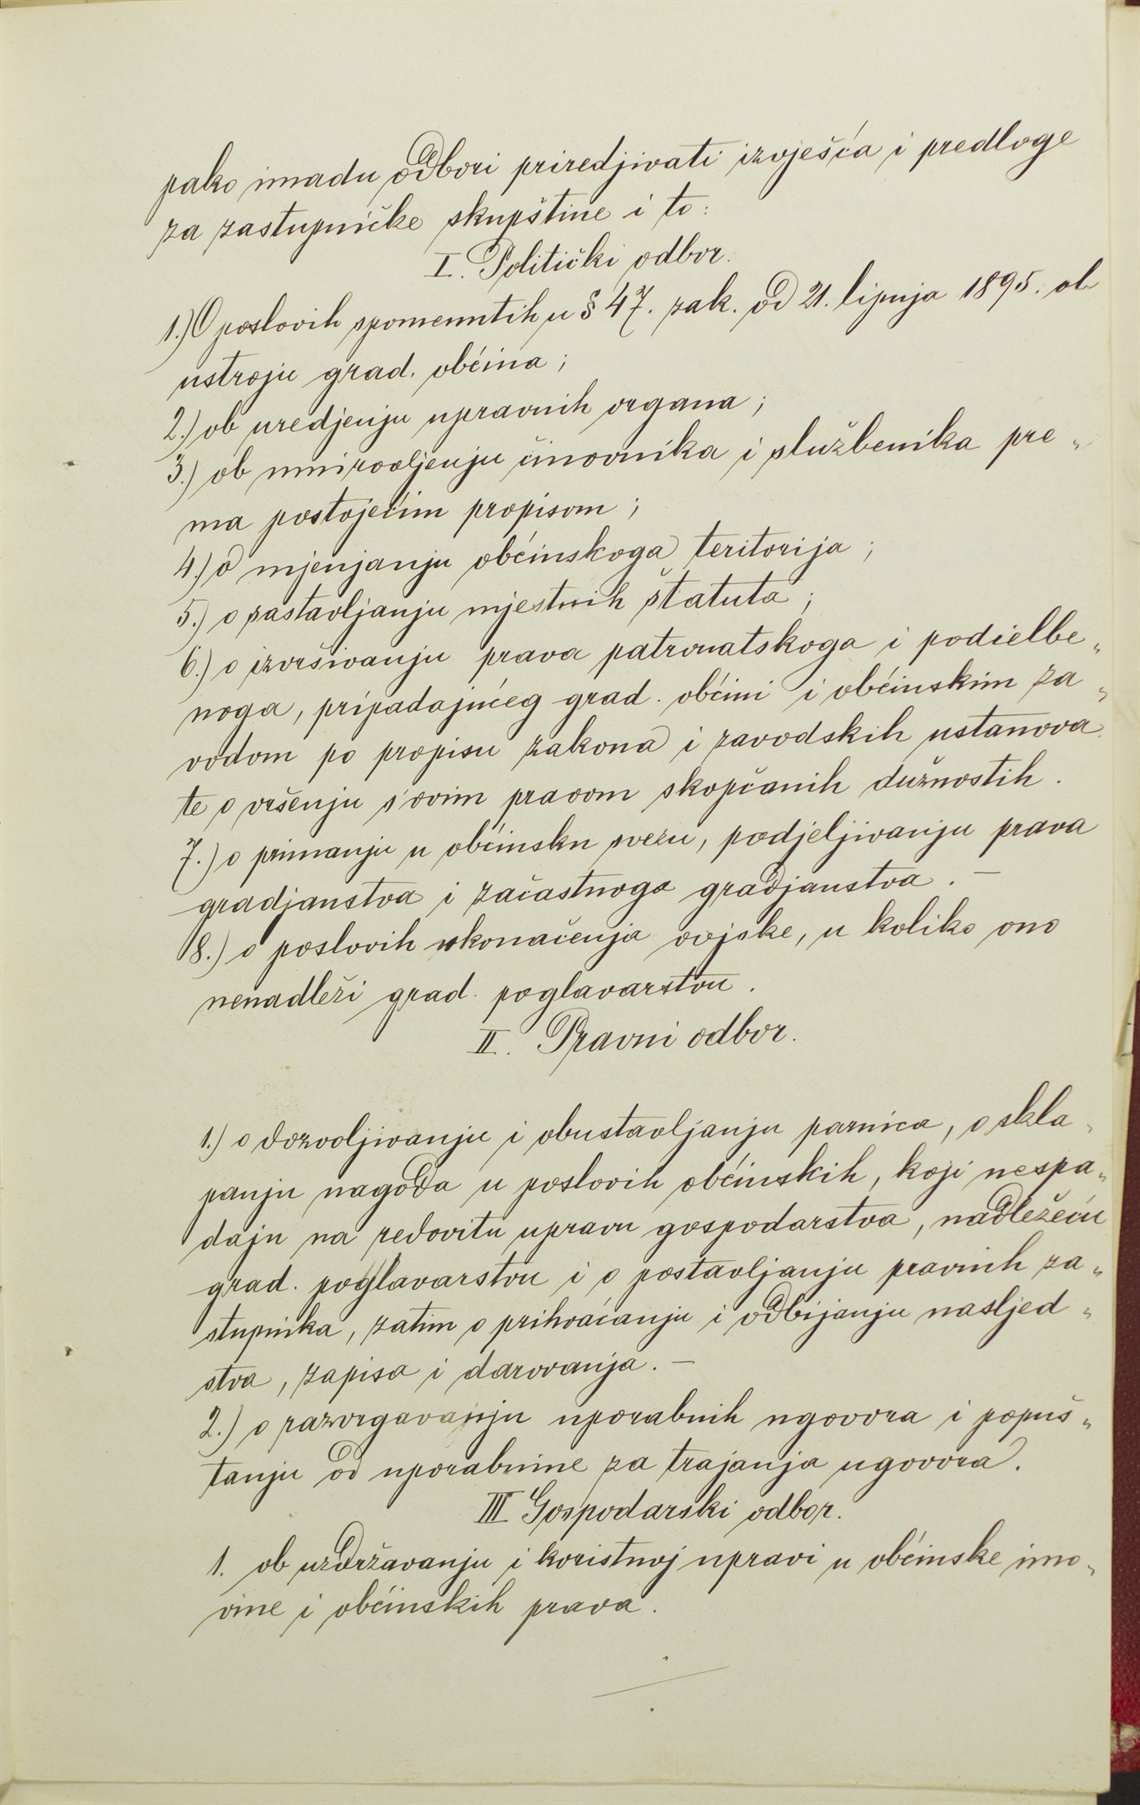 pako imadu odbori priredjivati izvješća i predloge
za zastupničke skupštine i to:
I. Politički odbor.
1.) O poslovih spomenutih u § 47. zak. od 21. lipnja 1895. ob
ustroju grad. obćina;
2.) ob uredjenju upravnih organa;
3.) ob umirovljenju činovnika i službenika pre„
ma postojećim propisom;
4.) o mjenjanju obćinskoga teritorija;
5.) o sastavljanju mjestnih štatuta;
6.) o izvršivanju prava patronatskoga i podielbe„
noga, pripadajućeg grad. obćini i obćinskim za„
vodom po propisu zakona i zavodskih ustanova
te o vršenju s'ovim pravom skopčanih dužnostih.
7.) o primanju u obćinsku svezu, podjeljivanju prava
gradjanstva i začastnoga gradjanstva. —
8.) o poslovih ukonačenja vojske, u koliko ono
nenadleži grad. poglavarstvu.
II. Pravni odbor.
1.) o dozvoljivanju i obustavljanju parnica, o skla„
panju nagoda u poslovih obćinskih, koji nespa„
daju na redovitu upravu gospodarstva, nadležeću
grad. poglavarstvu i o postavljanju pravnih za„
stupnika, zatim o prihvaćanju i odbijanju nasljed„
stva, zapisa i darovanja. —
2.) o razvrgavanju uporabnih ugovora i popuš„
tanju od uporabnine za trajanja ugovora.
III Gospodarski odbor.
1. ob uzdržavanju i koristnoj upravi u obćinske imo„
vine i obćinskih prava.